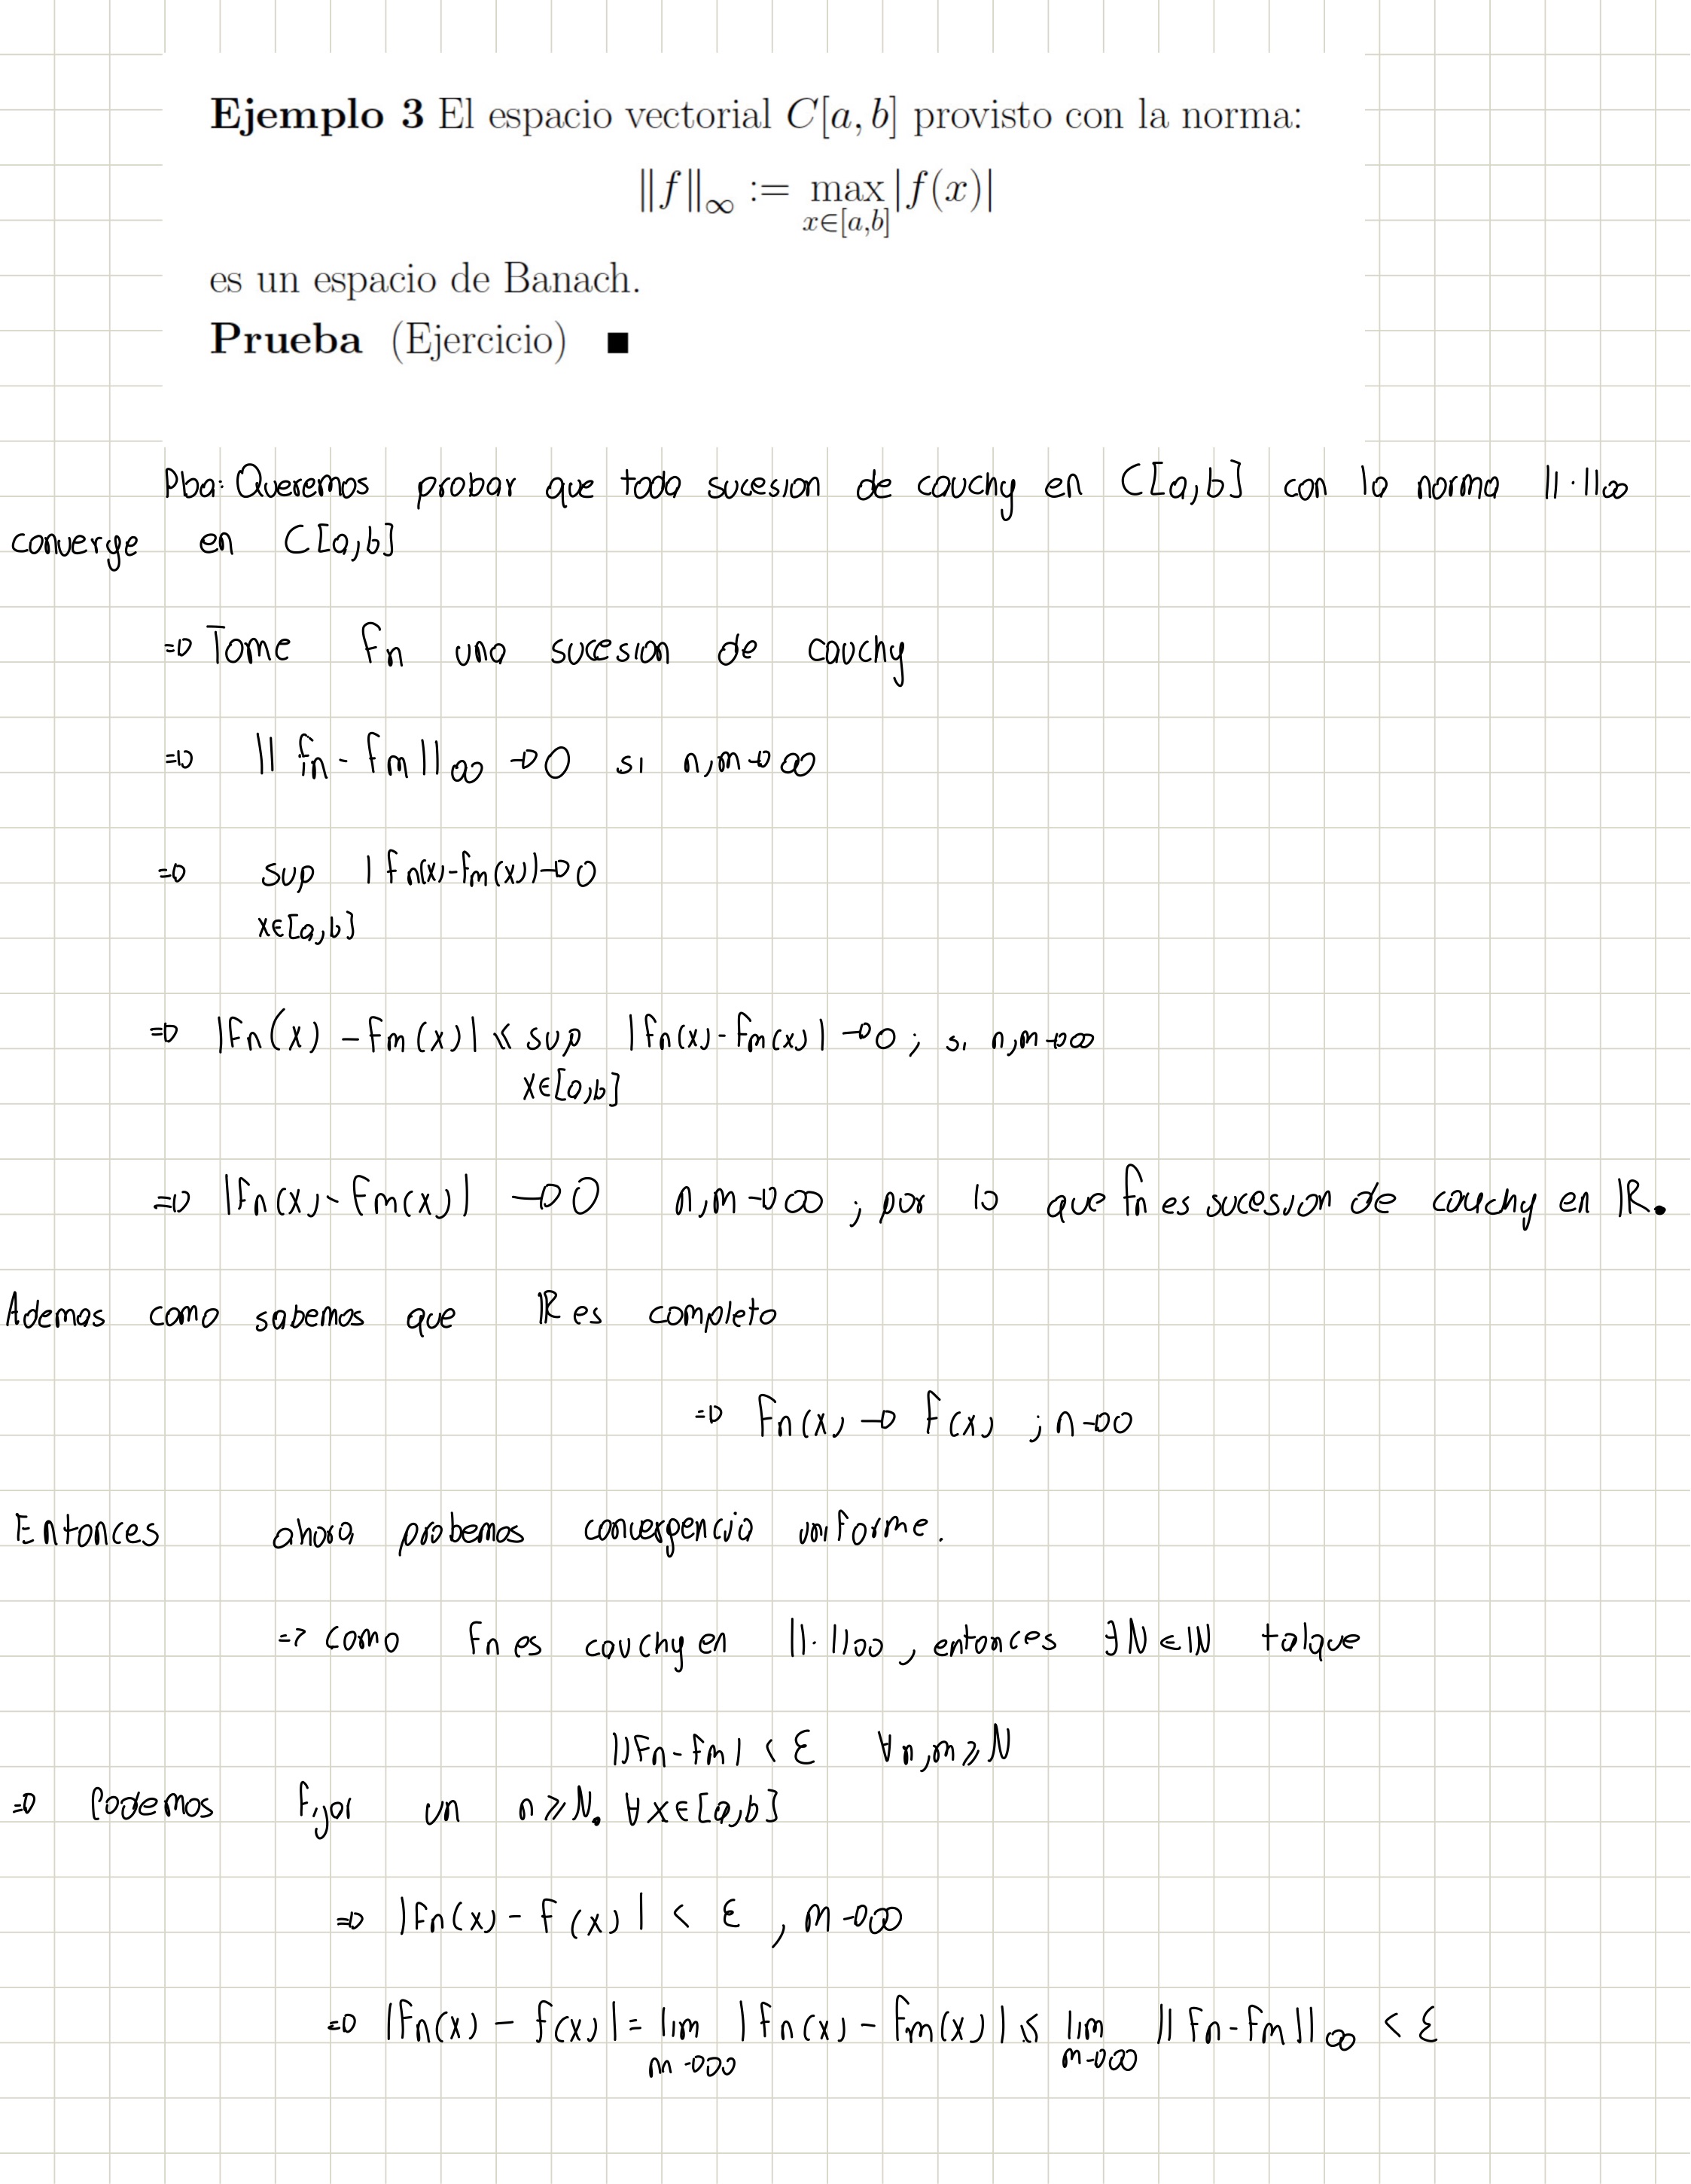 Ejemplo 3 El espacio vectorial C[a, b] provisto con la norma:
‖f‖∞ := max |f(x)|
x∈[a,b]
es un espacio de Banach.
Prueba (Ejercicio) ■
Pba: Queremos probar que toda sucesion de cauchy en C[a,b] con la norma ||·||∞
converge en C[a,b]
⇒ Tome fn una sucesion de cauchy
⇒ || fn - fm ||∞ → 0 si n,m → ∞
⇒ sup | fn(x) - fm(x)| → 0
x∈[a,b]
⇒ |fn(x) - fm(x)| ≤ sup |fn(x) - fm(x)| → 0 ; si n,m → ∞
x∈[a,b]
⇒ |fn(x) - fm(x)| → 0 n,m → ∞ ; por lo que fn es sucesion de cauchy en ℝ.
Ademas como sabemos que ℝ es completo
⇒ fn(x) → f(x) ; n → ∞
Entonces ahora probemos convergencia uniforme.
⇒ como fn es cauchy en ||·||∞, entonces ∃ N ∈ ℕ talque
||fn - fm| < ε ∀ n,m ≥ N
⇒ Podemos fijar un n ≥ N. ∀ x ∈ [a,b]
⇒ |fn(x) - f(x)| < ε , m → ∞
⇒ |fn(x) - f(x)| = lim | fn(x) - fm(x)| ≤ lim || fn - fm ||∞ < ε
m → ∞ m → ∞